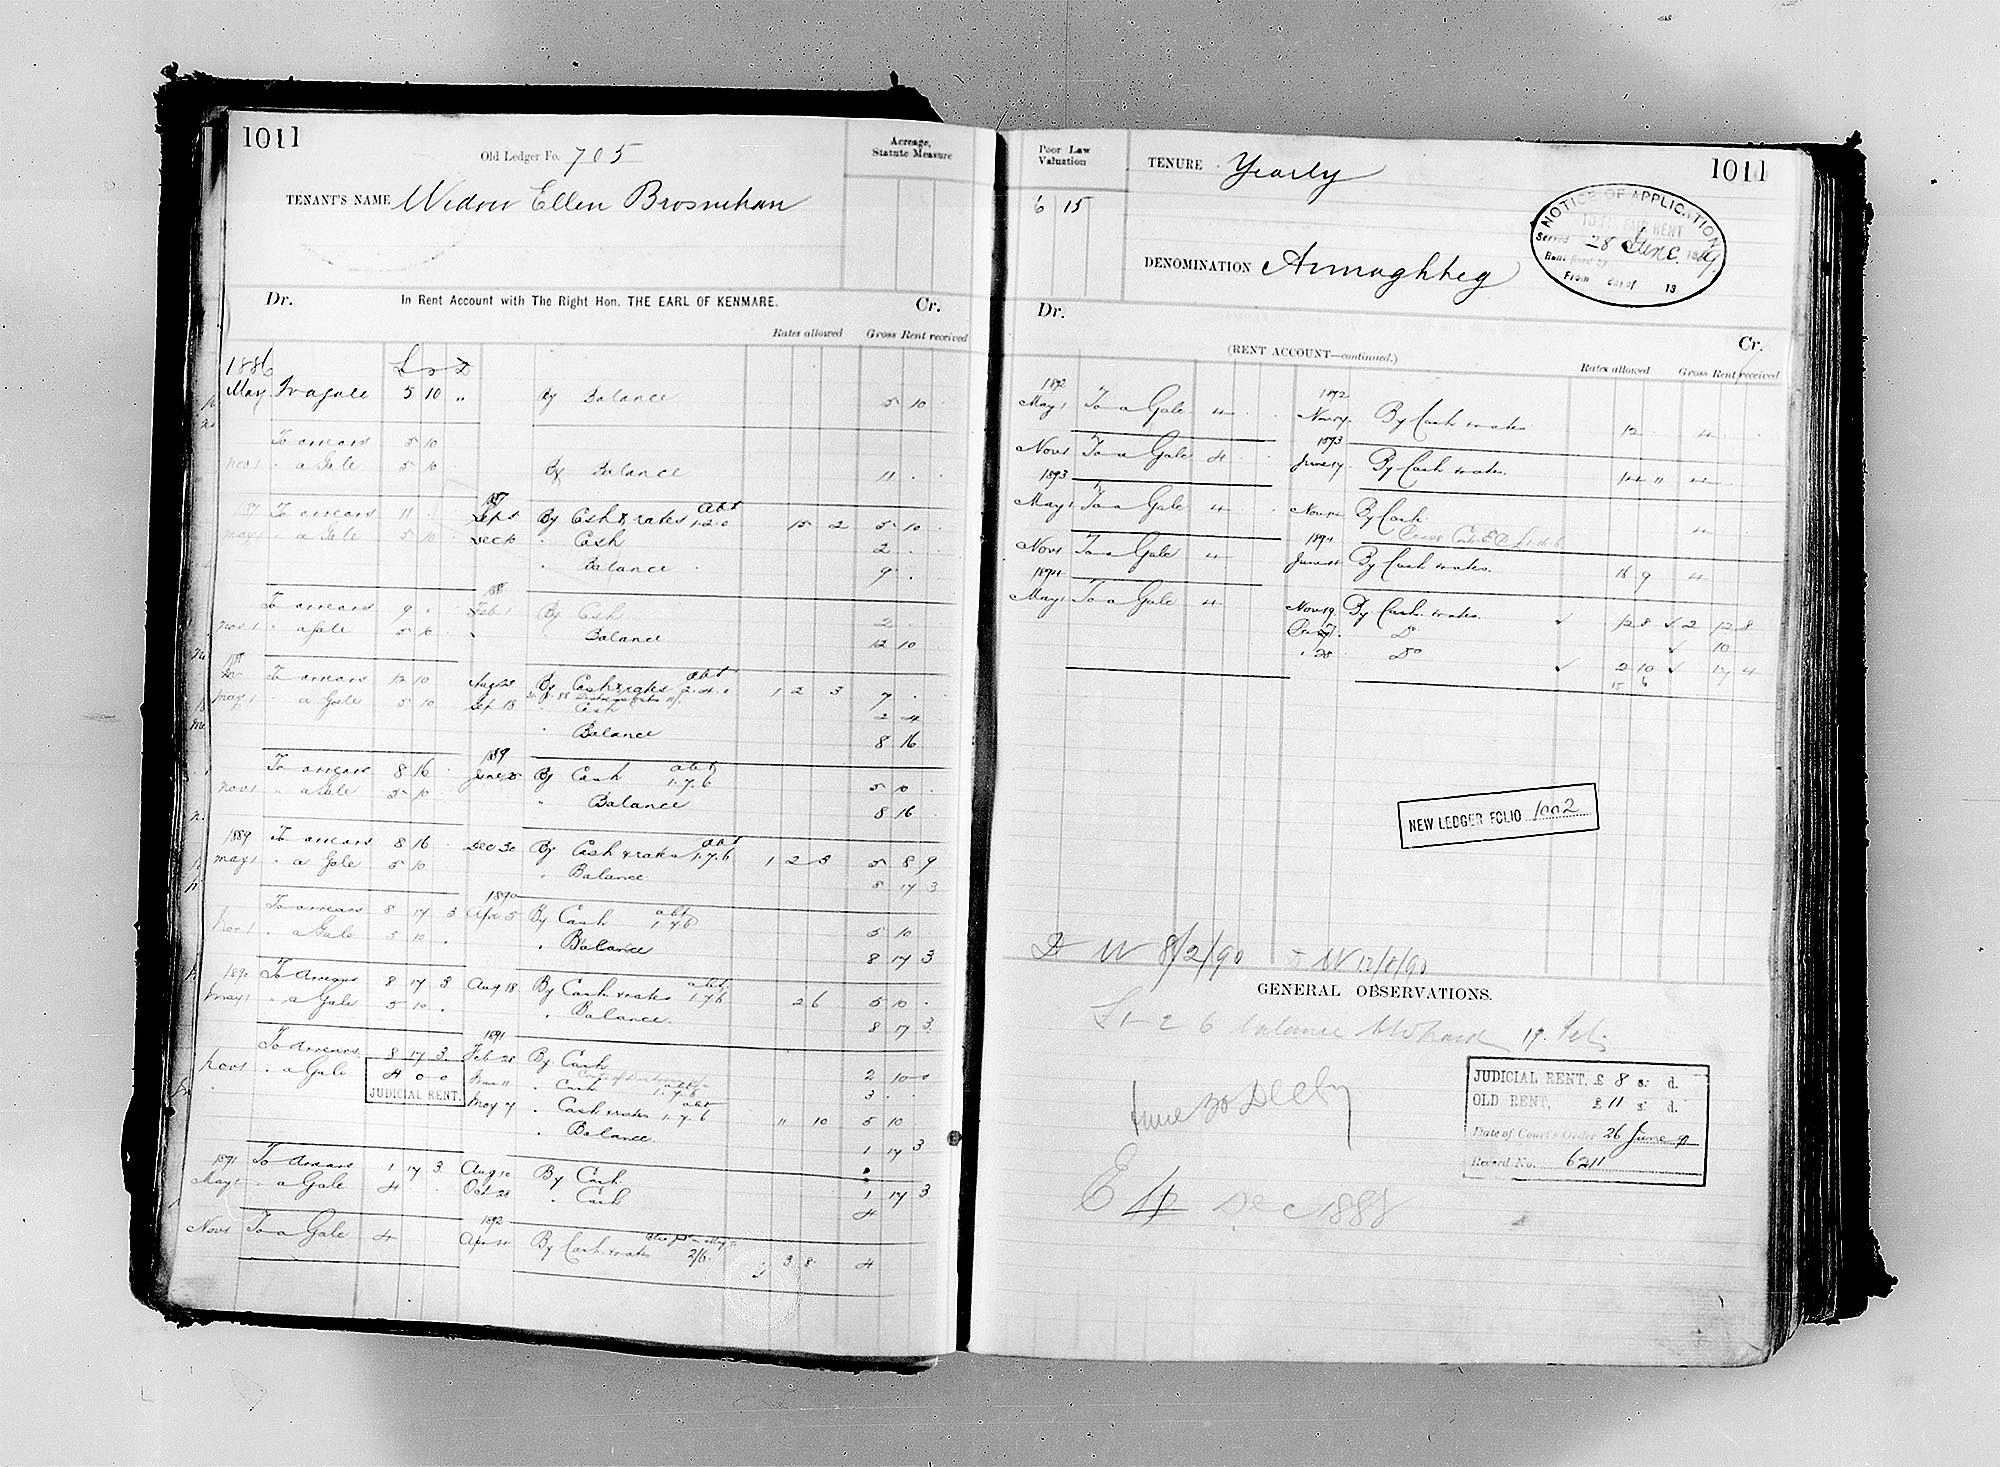 1011
Old Ledger Fo. 705
Acreage, Statute Measure
TENANT'S NAME Widow Ellen Brosnihan
Dr. In Rent Account with The Right Hon. THE EARL OF KENMARE. Cr.
Rates allowed Gross Rent received
1886 £ s D
May To a gale 5 10 " By Balance 5 10
To arrears 5 10
Nov 1 " a Gale 5 10 By Balance 11 . .
To arrears 11 . Sept By Cash & rates abt 1.2.0 15 2 5 10
May 1 " a Gale 5 10 " Cash 2 . .
" Balance 9 .
To arrears 9 . . Feb 1 By Cash 2 . .
Nov 1 " a Gale 5 10 Balance 12 10
To arrears 12 10 Aug 28 By Cash & rates abt 2.4.1 1 2 3 7 .
May 1 " a Gale 5 10 Sep 18 " Cash 2 4
" Balance 8 16
1889
To arrears 8 16 . June By Cash abt 1.7.6 5 10
Nov 1 " a Gale 5 10 " Balance 8 16
1889 To arrears 8 16 . Dec 30 By Cash & rates abt 1.7.6 1 2 3 5 8 9
May 1 " a Gale 5 10 " Balance 8 17 3
1890
To arrears 8 17 3 Apr 5 By Cash abt 1.7.6 5 10
Nov 1 " a Gale 5 10 . " Balance 8 17 3
1890 To Arrears 8 17 3 Aug 18 By Cash & rates abt 1.7.6 2 6 5 10 .
May 1 " a Gale 5 10 . " Balance 8 17 3
1891
To Arrears 8 17 3 Feb 28 By Cash 2 10 0
Nov 1 " a Gale 4 0 0 " Cash abt 1.7.6 3 . .
JUDICIAL RENT.
May 7 " Cash & rates abt 1.7.6 " 10 5 10
" Balance 1 17 3
1891 To Arrears 1 17 3 Aug 10 By Cash 1 17 3
May 1 " a Gale 4 . . Oct 28 " Cash 4
1892
Nov 1 To a Gale 4 Apr By Cash & rates 2/6 3 8 4
1011
Poor Law Valuation
6 15
TENURE Yearly
NOTICE OF APPLICATION
TO FIX FAIR RENT
Served 28 June 18
Rent fixed by
From day of 18
DENOMINATION Anmaghheg
Dr. Cr.
(RENT ACCOUNT—continued.)
Rates allowed Gross Rent received
1892 1892
May 1 To a Gale 4 . . Nov By Cash & rates 12 . 4 . .
1893
Nov 1 To a Gale 4 . . June 14 By Cash & rates 14 " 4
1893
May 1 To a Gale 4 . Nov By Cash 4
1894
Nov 1 To a Gale 4 June By Cash & rates 16 9 4
1894
May 1 To a Gale 4 Nov 19 By Cash & rates 12 8 2 12 8
Do 10
" 28 Do 2 10 17 4
15 6
NEW LEDGER FOLIO 1002
W 8/2/90 W 12/8/90
GENERAL OBSERVATIONS.
£1-2 6 balance 19 Feb
JUDICIAL RENT, £ 8 s. d.
OLD RENT, £ 11 s. d.
Date of Court's Order 26 June 91
Record No. 6211
Dec 1888